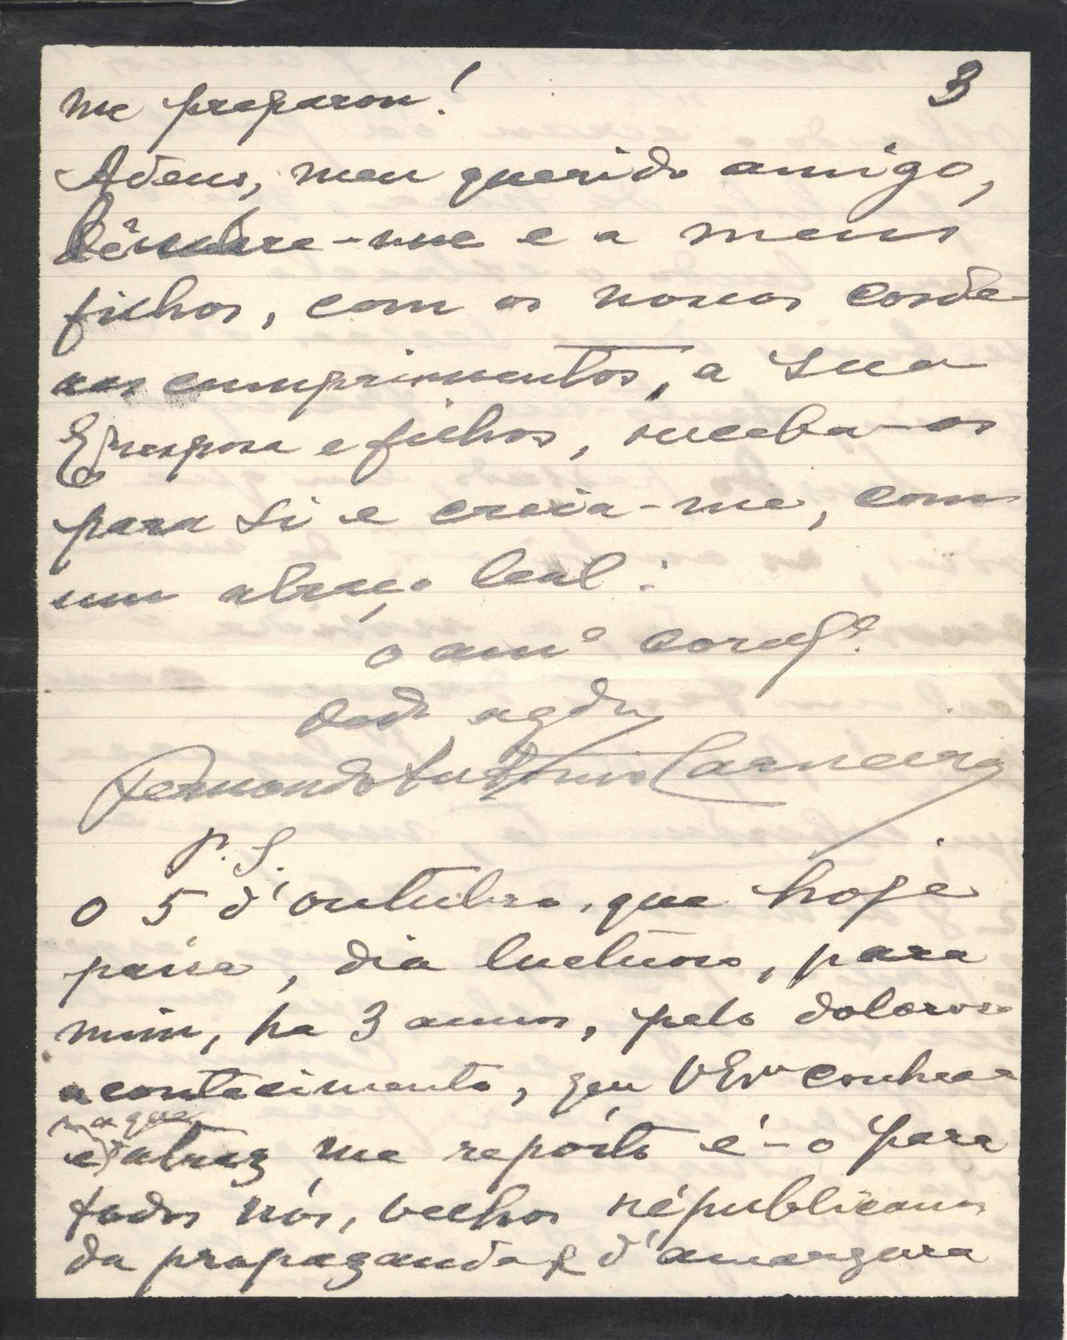 3
me preparou!
Adeus, meu querido amigo,
Lêmbre-me e a meus
filhos, com os nossos cordea-
es cumprimentos, a sua
Esposa e filhos, receba-os
para si e creia-me, com
um abraço leal:
o amº
obdº
Fernando Antonio Carneiro
P.S.
O 5 d'outubro, que hoje
passa, dia luctuoso, para
mim, ha 3 annos, pelo doloroso
acontecimento, que VExª conhece
e a que
atraz me reporto é-o para
todos nós, velhos républicanos
da propaganda, d'amargura